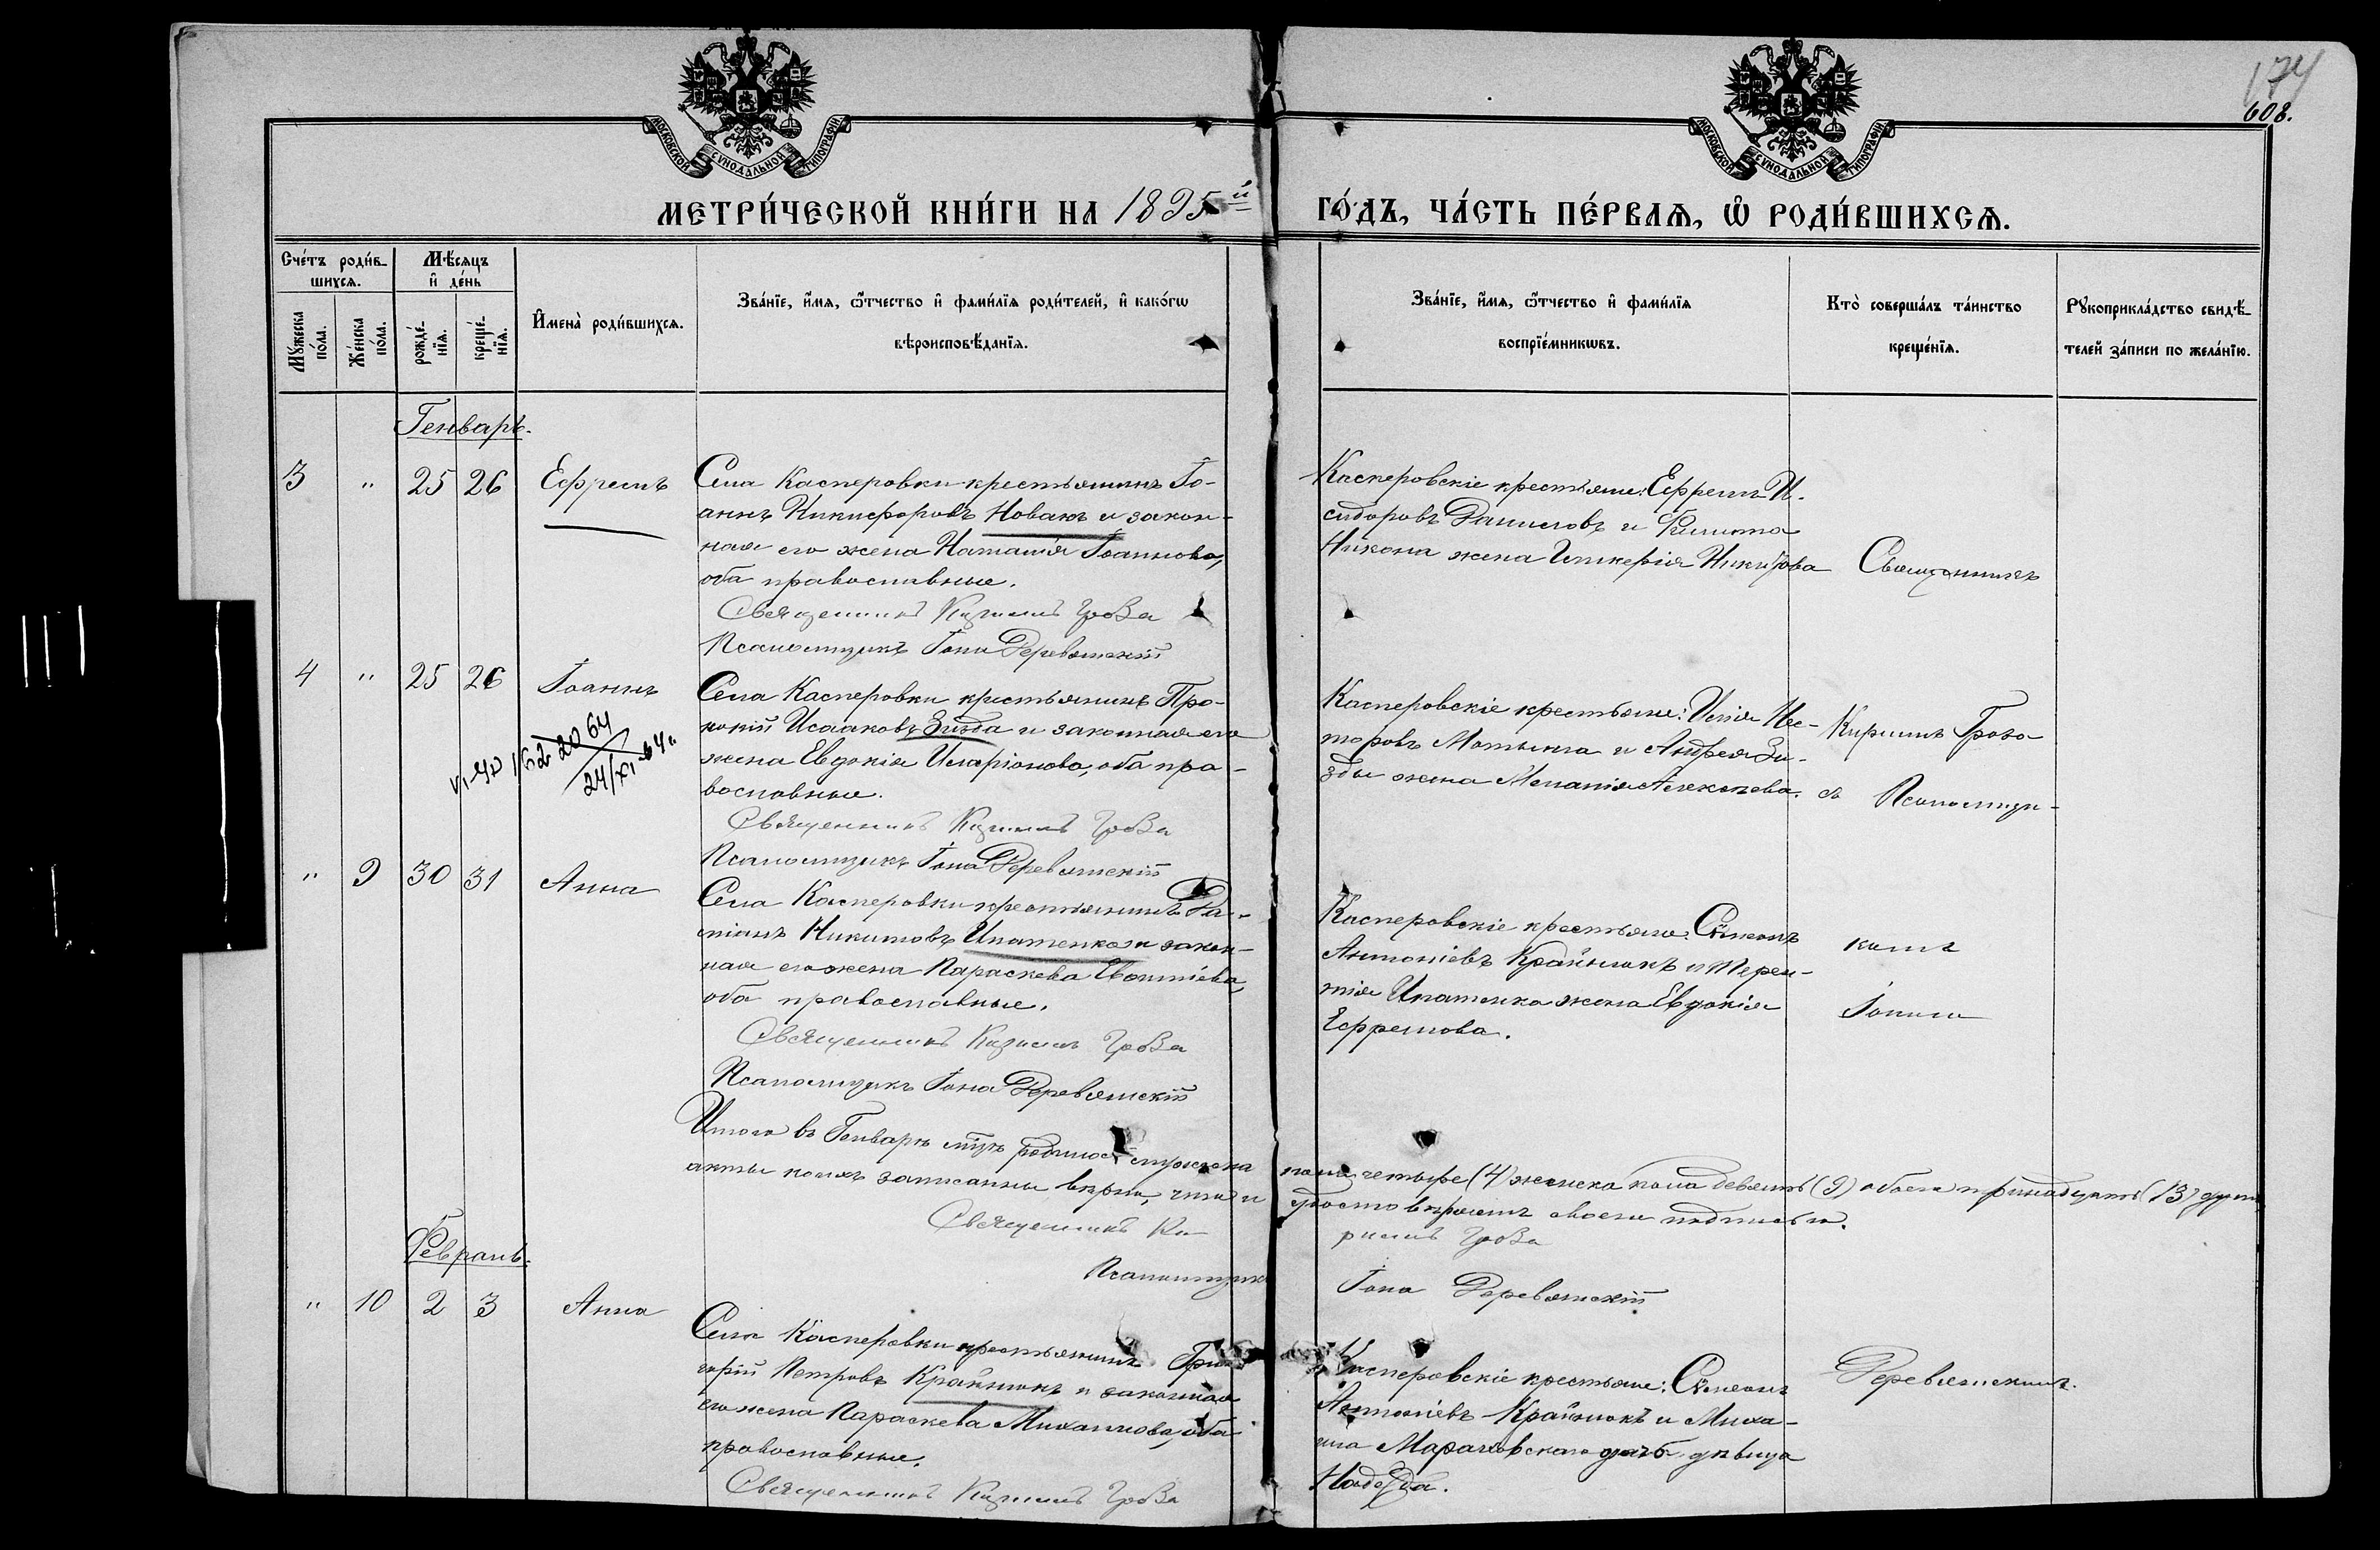 174
608.
МОСКОВСКОЙ СѴНОДАЛЬНОЙ ТИПОГРАФІИ
МОСКОВСКОЙ СѴНОДАЛЬНОЙ ТИПОГРАФІИ
МЕТРИ́ЧЕСКОЙ КНИ́ГИ НА 1895й ГО́ДЪ, ЧА́СТЬ ПЕ́РВАѦ, Ѡ РОДИ́ВШИХСѦ.
Сче́тъ роди́в-
шихся.
Мꙋ́жеска по́ла.
Же́нска по́ла.
Мѣ́сяцъ
и҆ де́нь
рожде́-
нїя.
креще́-
нїя.
И҆мена̀ роди́вшихся.
Зва́нїе, и҆́мя, ѻ҆́тчество и҆ фами́лїя роди́телей, и҆ како́гѡ
вѣроисповѣ́данїя.
Зва́нїе, и҆́мя, ѻ҆́тчество и҆ фами́лїя
воспрїе́мникѡвъ.
Кто̀ соверша́лъ та́инство
креще́нїя.
Рꙋкоприкла́дство свидѣ́-
телей за́писи по жела́нїю.
Генварь.
3 " 25 26 Ефремъ
Села Касперовки крестьянинъ Іо-
аннъ Никифоровъ Новакъ и закон-
ная его жена Наталія Іоаннова,
оба православные.
Священникъ Кириллъ Грова
Псаломщикъ Іона Деревянскій
Касперовскіе крестьяне: Ефремъ И-
сидоровъ Даниловъ и Филиппа
Никона жена Гликерія
4 " 25 26 Іоаннъ
24/XI-64
Села Касперовки крестьянинъ Про-
копій Исааковъ Зизда и законная его
жена Евдокія Иларіонова, оба пра-
вославные.
Священникъ Кириллъ Грова
Псаломщикъ Іона Деревянскій
Касперовскіе крестьяне: Илія Нес-
торовъ Мотыка и Андрея Зи-
зды жена Меланія Алексѣева.
" 9 30 31 Анна
Села Касперовки крестьянинъ Да-
міанъ Никитовъ Ипатенко и закон-
ная его жена Параскева
оба православные.
Священникъ Кириллъ Грова
Псаломщикъ Іона Деревянскій
Касперовскіе крестьяне: Сѵмеонъ
Антоніевъ Крайнюкъ и Терен-
тія Ипатенка жена Евдокія
Ефремова.
Итого въ Генварѣ мцѣ родилось мужеска пола четыре (4) женска пола девять (9) обоего тринадцать (13) душ
акты коихъ записаны вѣрно, что и удостовѣряемъ своею подписью.
Священникъ Кириллъ Грова
Псаломщикъ Іона Деревянскій
Февраль.
" 10 2 3 Анна
Села Касперовки крестьянинъ Гри-
горій Петровъ Крайнюкъ и законная
его жена Параскева Михаилова, оба
православные.
Священникъ Кириллъ Грова
Касперовскіе крестьяне: Сѵмеонъ
Антоніевъ Крайнюкъ и Миха-
ила Мараховскаго дочь дѣвица
Надежда.
Священникъ
Кириллъ Грова
съ Псаломщи-
комъ
Іоною
Деревянскимъ.